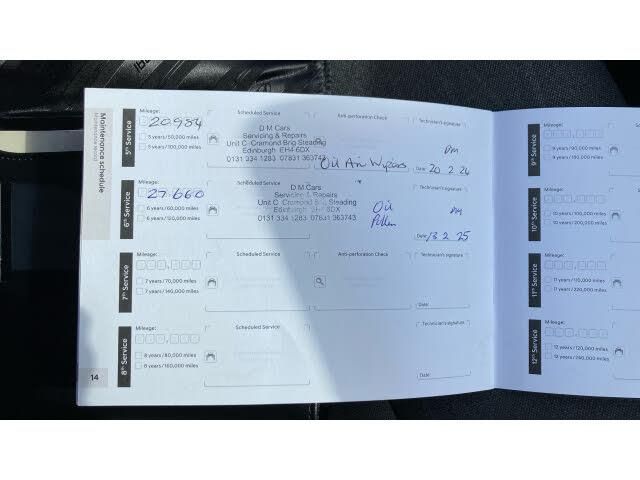 Maintenance schedule
Maintenance record
5th Service
Mileage:
20984
5 years/50,000 miles
5 years/100,000 miles
Scheduled Service
D M Cars
Servicing & Repairs
Unit C Cramond Brig Steading
Edinburgh EH4 6DX
0131 334 1283 07831 363743
Anti-perforation Check
Oil Air Wipers
Technician's signature
DM
Date: 20 2 24
6th Service
Mileage:
27660
6 years/60,000 miles
6 years/120,000 miles
Scheduled Service
D M Cars
Servicing & Repairs
Unit C Cramond Steading
Edinburgh
0131 334 1283 07831 363743
Oil
Pollen
Technician's signature
DM
Date: 13 2 25
7th Service
Mileage:
7 years/70,000 miles
7 years/140,000 miles
Scheduled Service
Anti-perforation Check
Technician's signature
Date:
8th Service
Mileage:
8 years/80,000 miles
8 years/160,000 miles
Scheduled Service
Technician's signature
Date:
14
9th Service
Mileage:
9 years/90,000 miles
9 years/180,000 miles
10th Service
Mileage:
10 years/100,000 miles
10 years/200,000 miles
11th Service
Mileage:
11 years/110,000 miles
11 years/220,000 miles
12th Service
Mileage:
12 years/120,000 miles
12 years/240,000 miles